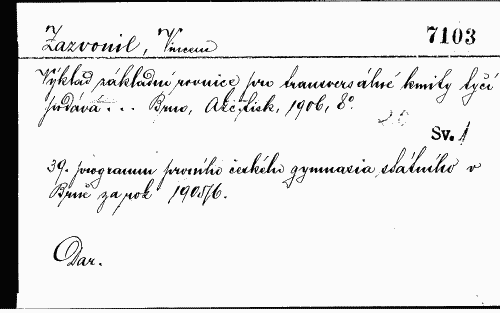 Zazvonil, Vincenc
7103
Výklad základní rovnice pro transversálné kmity tyčí
podává... Brno, Akc. tisk, 1906, 8°.
Sv. 1
39. program prvního českého gymnasia státního v
Brně za rok 1905/6.
Dar.